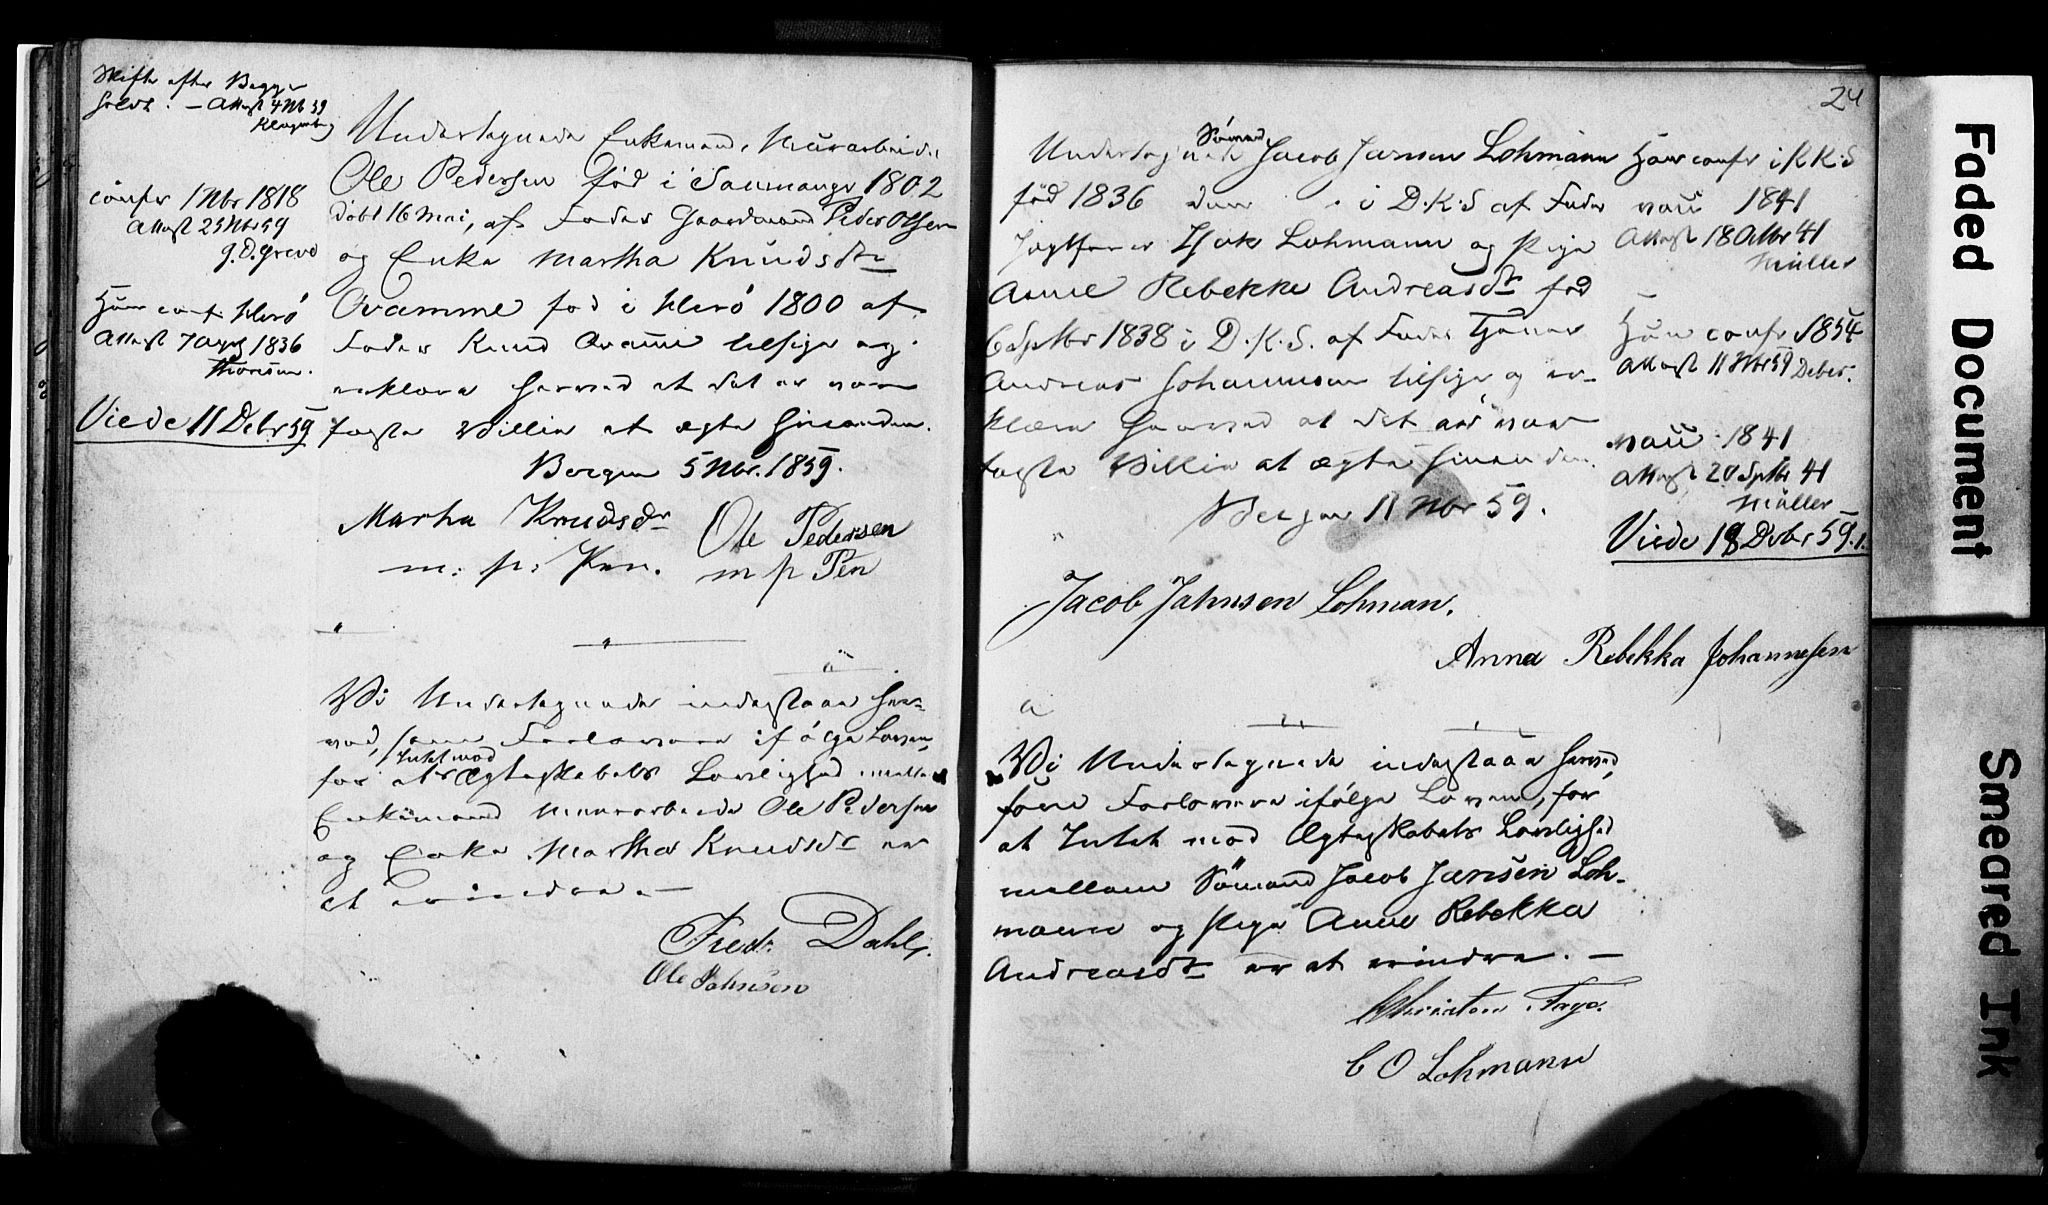 Skifte efter Begge
holdt. – Attest 4 Nbr 59
confr 1 Nbr 1818
Attest 25 Nbr 59
g.D. Greve
Hun conf. Herö
Attest 7 Aug 1836
Thoresen.
Viede 11 Debr 59
Undertegnede Enkemand, Murarbeider
Ole Pedersen fød i 1802
döbt 16 Mai, af Fader Gaardmand Peder Olsen
og Enke Martha Knudsdtr
Qvamme fød i Herö 1800 af
Fader Knud Qvamme tilsige og
erklære herved at det er vor
faste Villie at ægte hinanden.
Bergen 5 Nbr. 1859.
Martha Knudsdr Ole Pedersen
m: p: Pen. m p Pen
Vi Undertegnede indestaae her-
ved, som Forlovere ifölge Loven,
Intet mod
for at Ægteskabets Lovlighed mellem
Enkemand Murarbeider Ole Pedersen
og Enke Martha Knudsdtr er
at erindre. –
Fredr. Dahl.
Ole Johnsen
24
Sömand
Undertegnede Jacob Jansen Lohmann
fød 1836 den . i D.K.S af Fader
Jagtfører Lohmann og Pige
Anne Rebekke Andreasdtr fød
6 Septbr 1838 i D.K.S. af Fader Tjener
Andreas Johannesen tilsige og er-
klære herved at det er vor
faste Villie at ægte hinanden.
Bergen 11 Nbr 59.
Han confr i K K S
vacc 1841
Attest 18 Octbr 41
Müller
Hun confr 1854
Attest 11 Nbr 59
vacc 1841
Attest 20 Septbr 41
Müller
Viede 18 Debr 59.
Jacob Jahnsen Lohman.
Anna Rebekka Johannesen
Vi Undertegnede indestaae herved,
som Forlovere ifölge Loven, for
at Intet mod Ægteskabets Lovlighed
mellem Sömand Jacob Jansen Loh-
mann og Pige Anne Rebekka
Andreasdtr er at erindre. –
C O Lohmann
Faded Document
Smeared Ink